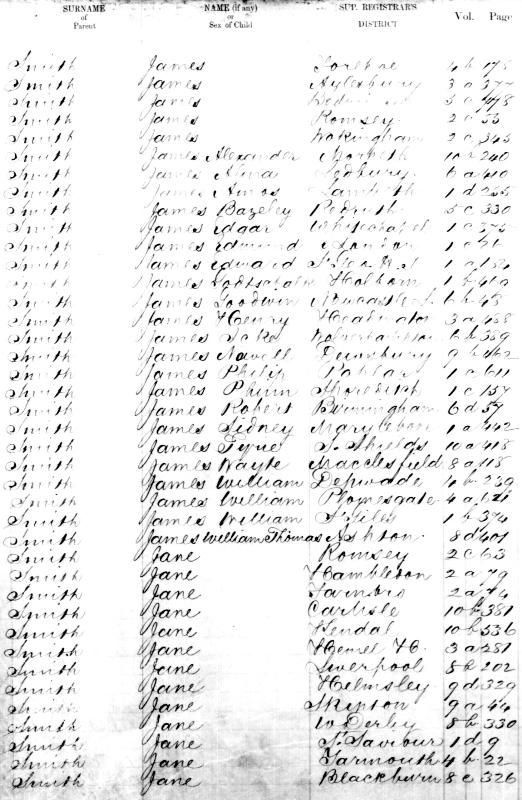 SURNAME of Parent NAME (if any) or Sex of Child SUP. REGISTRAR'S DISTRICT Vol. Page
Smith James Forehoe 4 b 178
Smith James Aylesbury 3 a 377
Smith James 3 a 478
Smith James Romsey 2 c 55
Smith James Wokingham 2 c 345
Smith James Alexander Morpeth 10 b 240
Smith James Ledbury 6 a 410
Smith James Amos Lambeth 1 d 255
Smith James Bazeley Redruth 5 c 330
Smith James Edgar Whitechapel 1 c
Smith James Edmund London 1 c
Smith James Edward St Geo H. S 1 a
Smith James Holborn 1 b
Smith James Goodwin Newcastle L. 6 b 43
Smith James Henry Headington 3 a
Smith James Wolverhampton 6 b 359
Smith James Dewsbury 9 b 462
Smith James Philip Poplar 1 c 611
Smith James Shoreditch 1 c 157
Smith James Robert Birmingham 6 d 57
Smith James Sidney Marylebone 1 a 442
Smith James S. Shields 10 a 418
Smith James Wayte Macclesfield 8 a 118
Smith James William Depwade 4 b 239
Smith James William Plomesgate 4 a
Smith James William St Giles 1 b 374
Smith James William Thomas Ashton 8 d 401
Smith Jane Romsey 2 c 63
Smith Jane Hambledon 2 a 79
Smith Jane 2 a 74
Smith Jane Carlisle 10 b 381
Smith Jane Kendal 10 b 536
Smith Jane Hemel H. 3 a 281
Smith Jane Liverpool 8 b 202
Smith Jane Helmsley 9 d 329
Smith Jane Skipton 9 a 44
Smith Jane W. Derby 8 b 330
Smith Jane St Saviour 1 d 9
Smith Jane Yarmouth 4 b 22
Smith Jane Blackburn 8 e 326